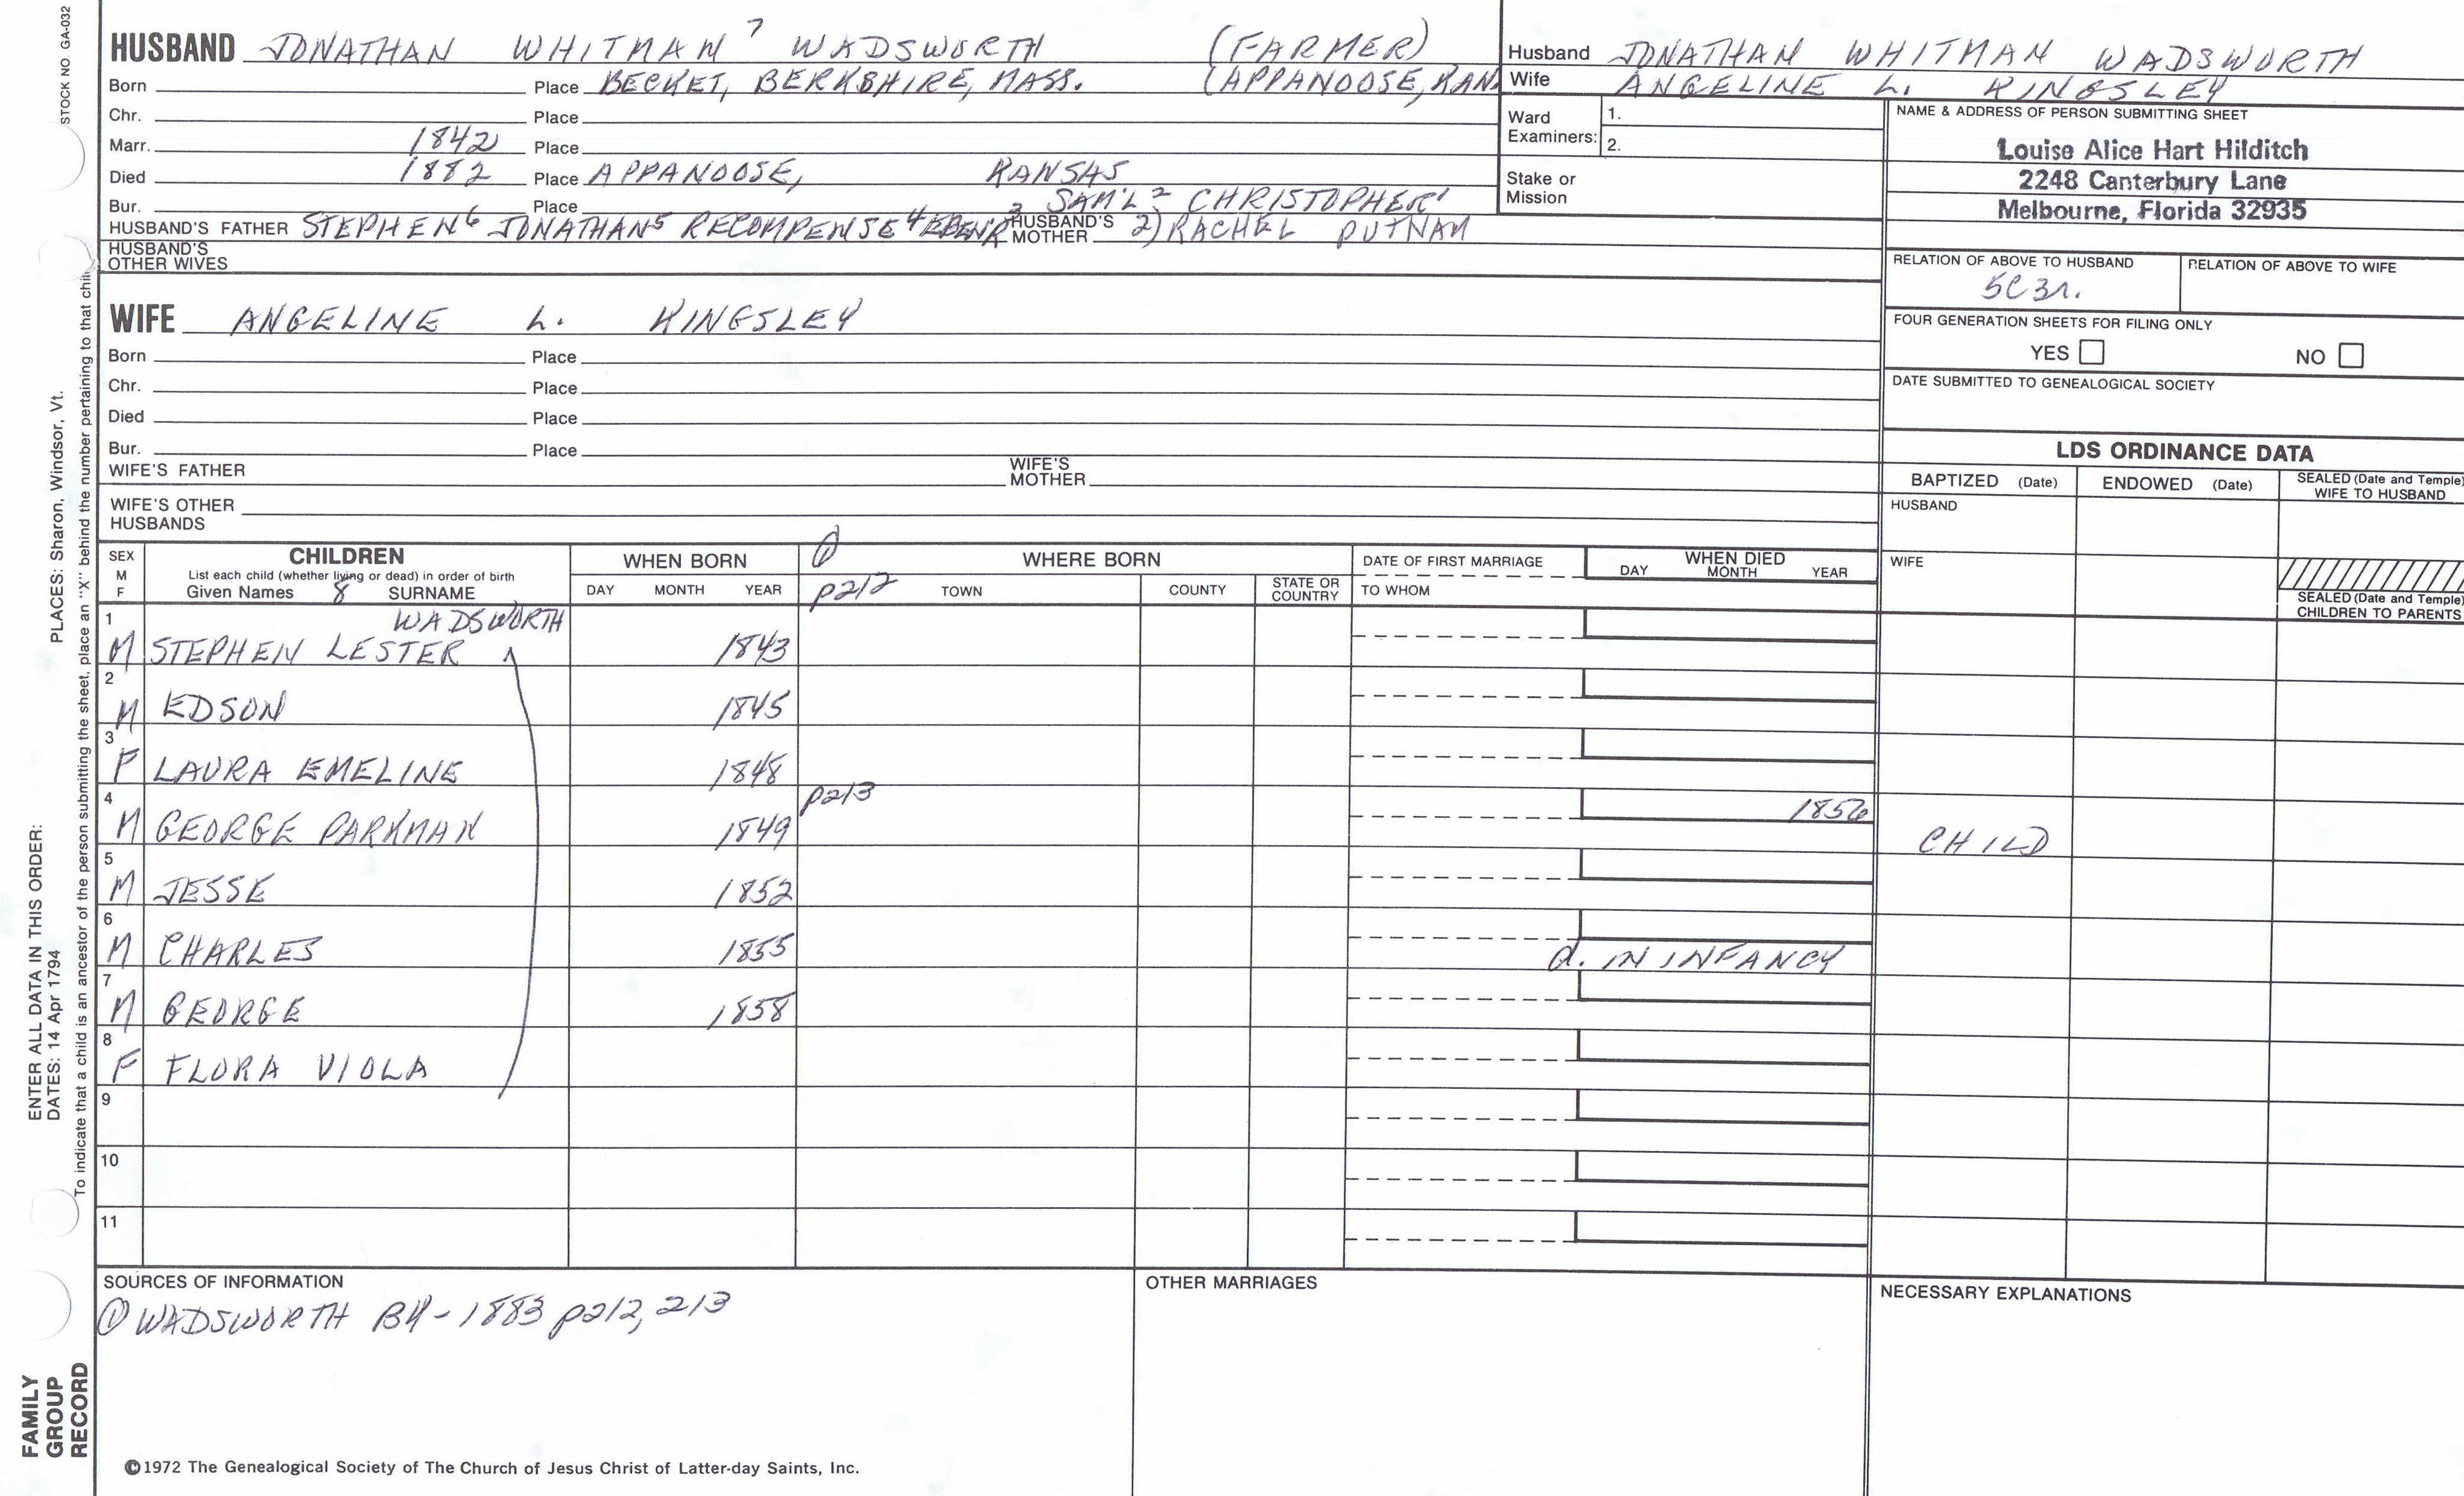 STOCK NO. GA-032
HUSBAND JONATHAN WHITMAN 7 WADSWORTH (FARMER)
Born Place BECKET, BERKSHIRE, MASS. (APPANOOSE, KAN.
Chr. Place
Marr. 1842 Place
Died 1882 Place APPANOOSE, KANSAS
Bur. Place 3 SAM'L 2 CHRISTOPHER 1
HUSBAND'S FATHER STEPHEN 6 JONATHAN 5 RECOMPENSE 4 EBENR HUSBAND'S MOTHER 2) RACHEL PUTNAM
HUSBAND'S OTHER WIVES
WIFE ANGELINE L. KINGSLEY
Born Place
Chr. Place
Died Place
Bur. Place
WIFE'S FATHER WIFE'S MOTHER
WIFE'S OTHER HUSBANDS
Husband JONATHAN WHITMAN WADSWORTH
Wife ANGELINE L. KINGSLEY
Ward Examiners: 1.
2.
Stake or Mission
NAME & ADDRESS OF PERSON SUBMITTING SHEET
Louise Alice Hart Hilditch
2248 Canterbury Lane
Melbourne, Florida 32935
RELATION OF ABOVE TO HUSBAND RELATION OF ABOVE TO WIFE
5C3r.
FOUR GENERATION SHEETS FOR FILING ONLY
YES NO
DATE SUBMITTED TO GENEALOGICAL SOCIETY
LDS ORDINANCE DATA
BAPTIZED (Date) ENDOWED (Date) SEALED (Date and Temple) WIFE TO HUSBAND
HUSBAND
WIFE
SEALED (Date and Temple) CHILDREN TO PARENTS
SEX M F CHILDREN WHEN BORN ① WHERE BORN DATE OF FIRST MARRIAGE WHEN DIED
List each child (whether living or dead) in order of birth
Given Names 8 SURNAME DAY MONTH YEAR p212 TOWN COUNTY STATE OR COUNTRY TO WHOM DAY MONTH YEAR
WADSWORTH
1 M STEPHEN LESTER 1843
2 M EDSON 1845
3 F LAURA EMELINE 1848
p213
4 M GEORGE PARKMAN 1849 1856 CHILD
5 M JESSE 1852
6 M CHARLES 1855 d. IN INFANCY
7 M GEORGE 1858
8 F FLORA VIOLA
9
10
11
SOURCES OF INFORMATION
① WADSWORTH BY - 1883 p212, 213
OTHER MARRIAGES
NECESSARY EXPLANATIONS
©1972 The Genealogical Society of The Church of Jesus Christ of Latter-day Saints, Inc.
FAMILY GROUP RECORD
ENTER ALL DATA IN THIS ORDER:
DATES: 14 Apr 1794 PLACES: Sharon, Windsor, Vt.
To indicate that a child is an ancestor of the person submitting the sheet, place an "X" behind the number pertaining to that chil